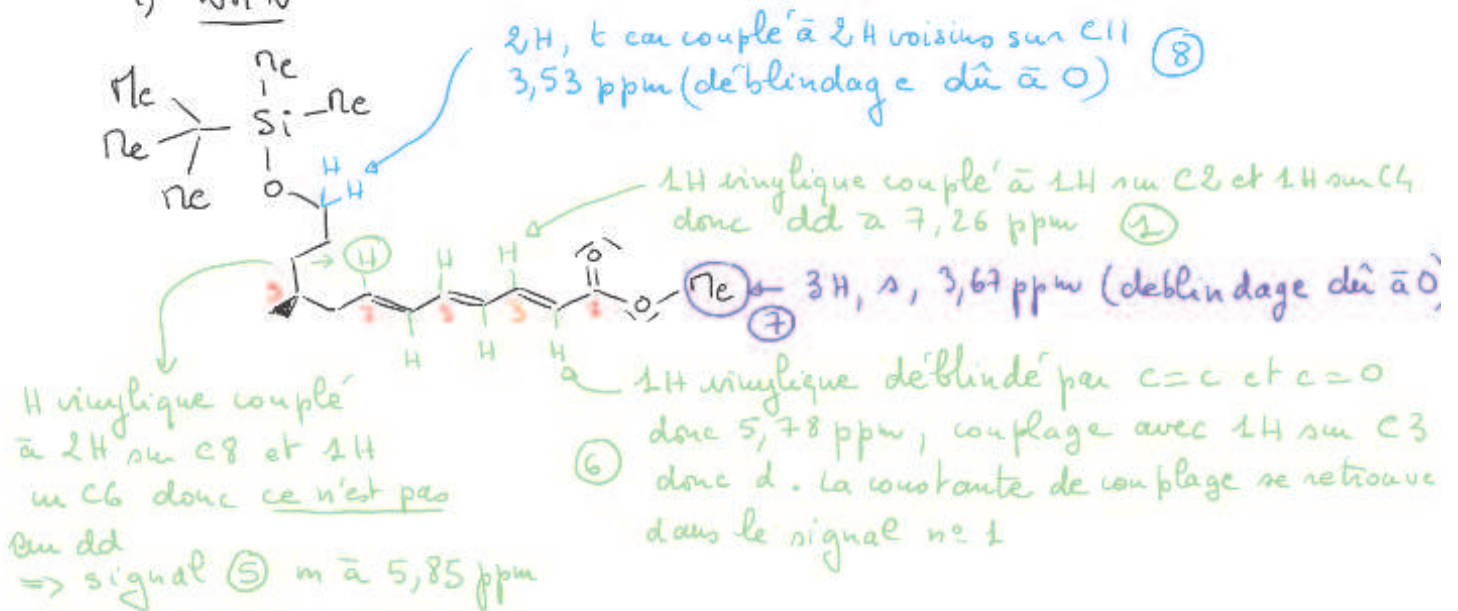 1) NOM
2H, t car couplé à 2H voisins sur C11
3,53 ppm (déblindage dû à O) ⑧
Me
Me
Me
Si
Me
Me
O
H
H
1H vinylique couplé à 1H sur C2 et 1H sur C4
donc dd à 7,26 ppm ①
H
H
H
O
O
Me
3H, s, 3,67 ppm (déblindage dû à O)
⑦
9
7
5
3
1
H
H
H
H vinylique couplé
à 2H sur C8 et 1H
sur C6 donc ce n'est pas
un dd
=> signal ⑤ m à 5,85 ppm
1H vinylique déblindé par C=C et C=O
donc 5,78 ppm, couplage avec 1H sur C3
⑥ donc d. La constante de couplage se retrouve
dans le signal n° 1